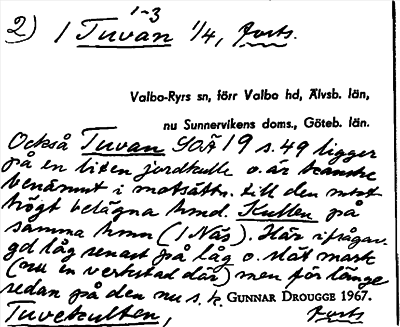 1-3
2) 1 Tuvan 1/4, forts.
Valbo-Ryrs sn, förr Valbo hd, Älvsb. län,
nu Sunnervikens doms., Göteb. län.
Också Tuvan SOÄ 19 s. 49 ligger
på en liten jordkulle o. är kanske
benämnt i motsättn. till den mot
högt belägna hmd. Kullen på
samma hmn (1 Näs). Här ifrågav.
gd låg senast på låg o. slät mark
(nu en verkstad där) men för länge
sedan på den nu s. k. GUNNAR DROUGGE 1967.
Tuvekullen, forts